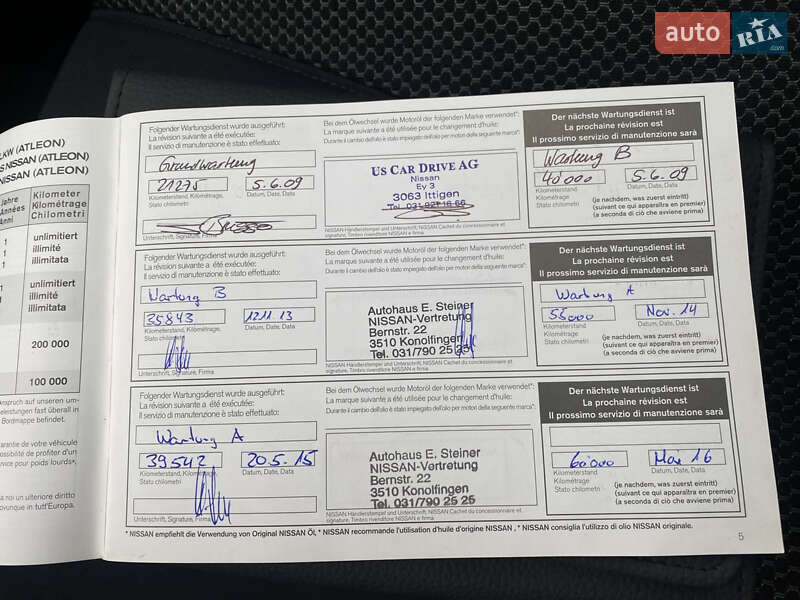 auto RIA .com
LKW (ATLEON)
S NISSAN (ATLEON)
NISSAN (ATLEON)
Jahre
Années
Anni
Kilometer
Kilométrage
Chilometri
1
1
1
unlimitiert
illimité
illimitata
unlimitiert
illimité
illimitata
200 000
100 000
Anspruch auf unseren um-
eleistungen fast überall in
Bordmappe befindet.
garantie de votre véhicule
possibilité de profiter d'un
vice pour poids lourds*.
a noi un ulteriore diritto
ovunque in tutt'Europa.
Folgender Wartungsdienst wurde ausgeführt:
La révision suivante a été exécutée:
Il servizio di manutenzione è stato effettuato:
Grundwartung
21275 5.6.09
Kilometerstand, Kilométrage, Stato chilometri
Datum, Date, Data
Unterschrift, Signature, Firma
Bei dem Ölwechsel wurde Motoröl der folgenden Marke verwendet*:
La marque suivante a été utilisée pour le changement d'huile:
Durante il cambio dell'olio è stato impiegato dell'olio per motori della seguente marca*:
US CAR DRIVE AG
Nissan
Ey 3
3063 Ittigen
Tel. 031 921 16 66
NISSAN Händlerstempel und Unterschrift, NISSAN Cachet du concessionnaire et
signature, Timbro rivenditore NISSAN e firma
Der nächste Wartungsdienst ist
La prochaine révision est
Il prossimo servizio di manutenzione sarà
Wartung B
40000 5.6.09
Kilometerstand
Kilométrage
Stato chilometri
Datum, Date, Data
(je nachdem, was zuerst eintritt)
(suivant ce qui apparaîtra en premier)
(a seconda di ciò che avviene prima)
Folgender Wartungsdienst wurde ausgeführt:
La révision suivante a été exécutée:
Il servizio di manutenzione è stato effettuato:
Wartung B
35843 12.11.13
Kilometerstand, Kilométrage, Stato chilometri
Datum, Date, Data
Unterschrift, Signature, Firma
Bei dem Ölwechsel wurde Motoröl der folgenden Marke verwendet*:
La marque suivante a été utilisée pour le changement d'huile:
Durante il cambio dell'olio è stato impiegato dell'olio per motori della seguente marca*:
Autohaus E. Steiner
NISSAN-Vertretung
Bernstr. 22
3510 Konolfingen
Tel. 031/790 25 25
NISSAN Händlerstempel und Unterschrift, NISSAN Cachet du concessionnaire et
signature, Timbro rivenditore NISSAN e firma
Der nächste Wartungsdienst ist
La prochaine révision est
Il prossimo servizio di manutenzione sarà
Wartung A
55000 Nov. 14
Kilometerstand
Kilométrage
Stato chilometri
Datum, Date, Data
(je nachdem, was zuerst eintritt)
(suivant ce qui apparaîtra en premier)
(a seconda di ciò che avviene prima)
Folgender Wartungsdienst wurde ausgeführt:
La révision suivante a été exécutée:
Il servizio di manutenzione è stato effettuato:
Wartung A
39542 20.5.15
Kilometerstand, Kilométrage, Stato chilometri
Datum, Date, Data
Unterschrift, Signature, Firma
Bei dem Ölwechsel wurde Motoröl der folgenden Marke verwendet*:
La marque suivante a été utilisée pour le changement d'huile:
Durante il cambio dell'olio è stato impiegato dell'olio per motori della seguente marca*:
Autohaus E. Steiner
NISSAN-Vertretung
Bernstr. 22
3510 Konolfingen
Tel. 031/790 25 25
NISSAN Händlerstempel und Unterschrift, NISSAN Cachet du concessionnaire et
signature, Timbro rivenditore NISSAN e firma
Der nächste Wartungsdienst ist
La prochaine révision est
Il prossimo servizio di manutenzione sarà
60000 Mai 16
Kilometerstand
Kilométrage
Stato chilometri
Datum, Date, Data
(je nachdem, was zuerst eintritt)
(suivant ce qui apparaîtra en premier)
(a seconda di ciò che avviene prima)
* NISSAN empfiehlt die Verwendung von Original NISSAN Öl, * NISSAN recommande l'utilisation d'huile d'origine NISSAN , * NISSAN consiglia l'utilizzo di olio NISSAN originale.
5